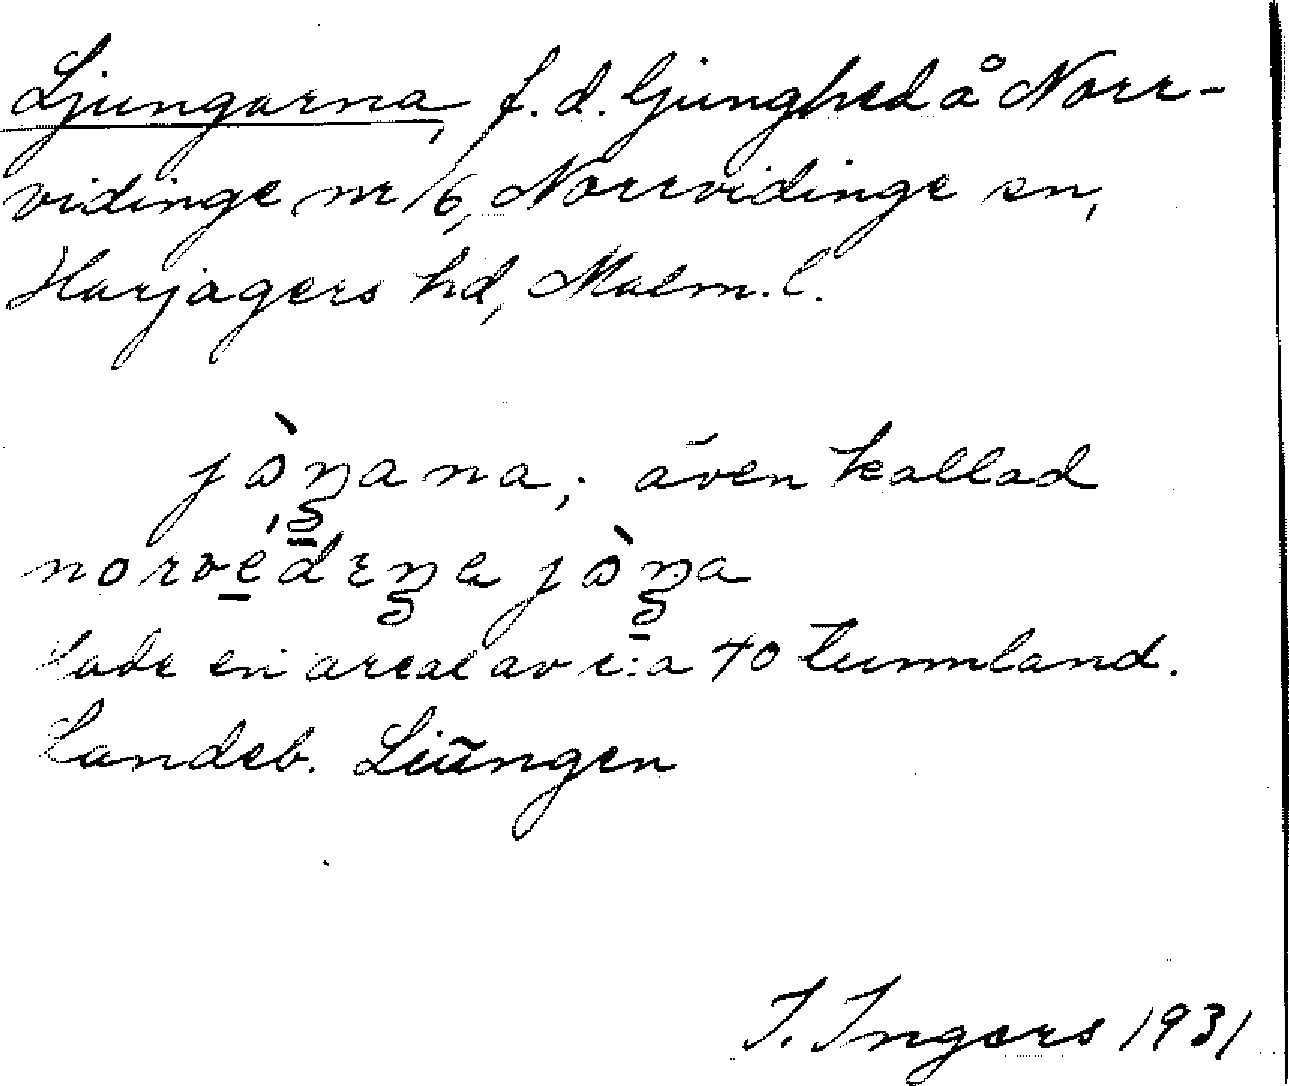 Ljungarna, f.d. ljunghed å Norr-
vidinge nr 16, Norrvidinge sn,
Harjagers hd, Malm. l.
jòŋana; även kallad
norvédɛŋa jòŋa
hade en areal av c:a 40 tunnland.
Landeb. Liũngen
I. Ingers 1931